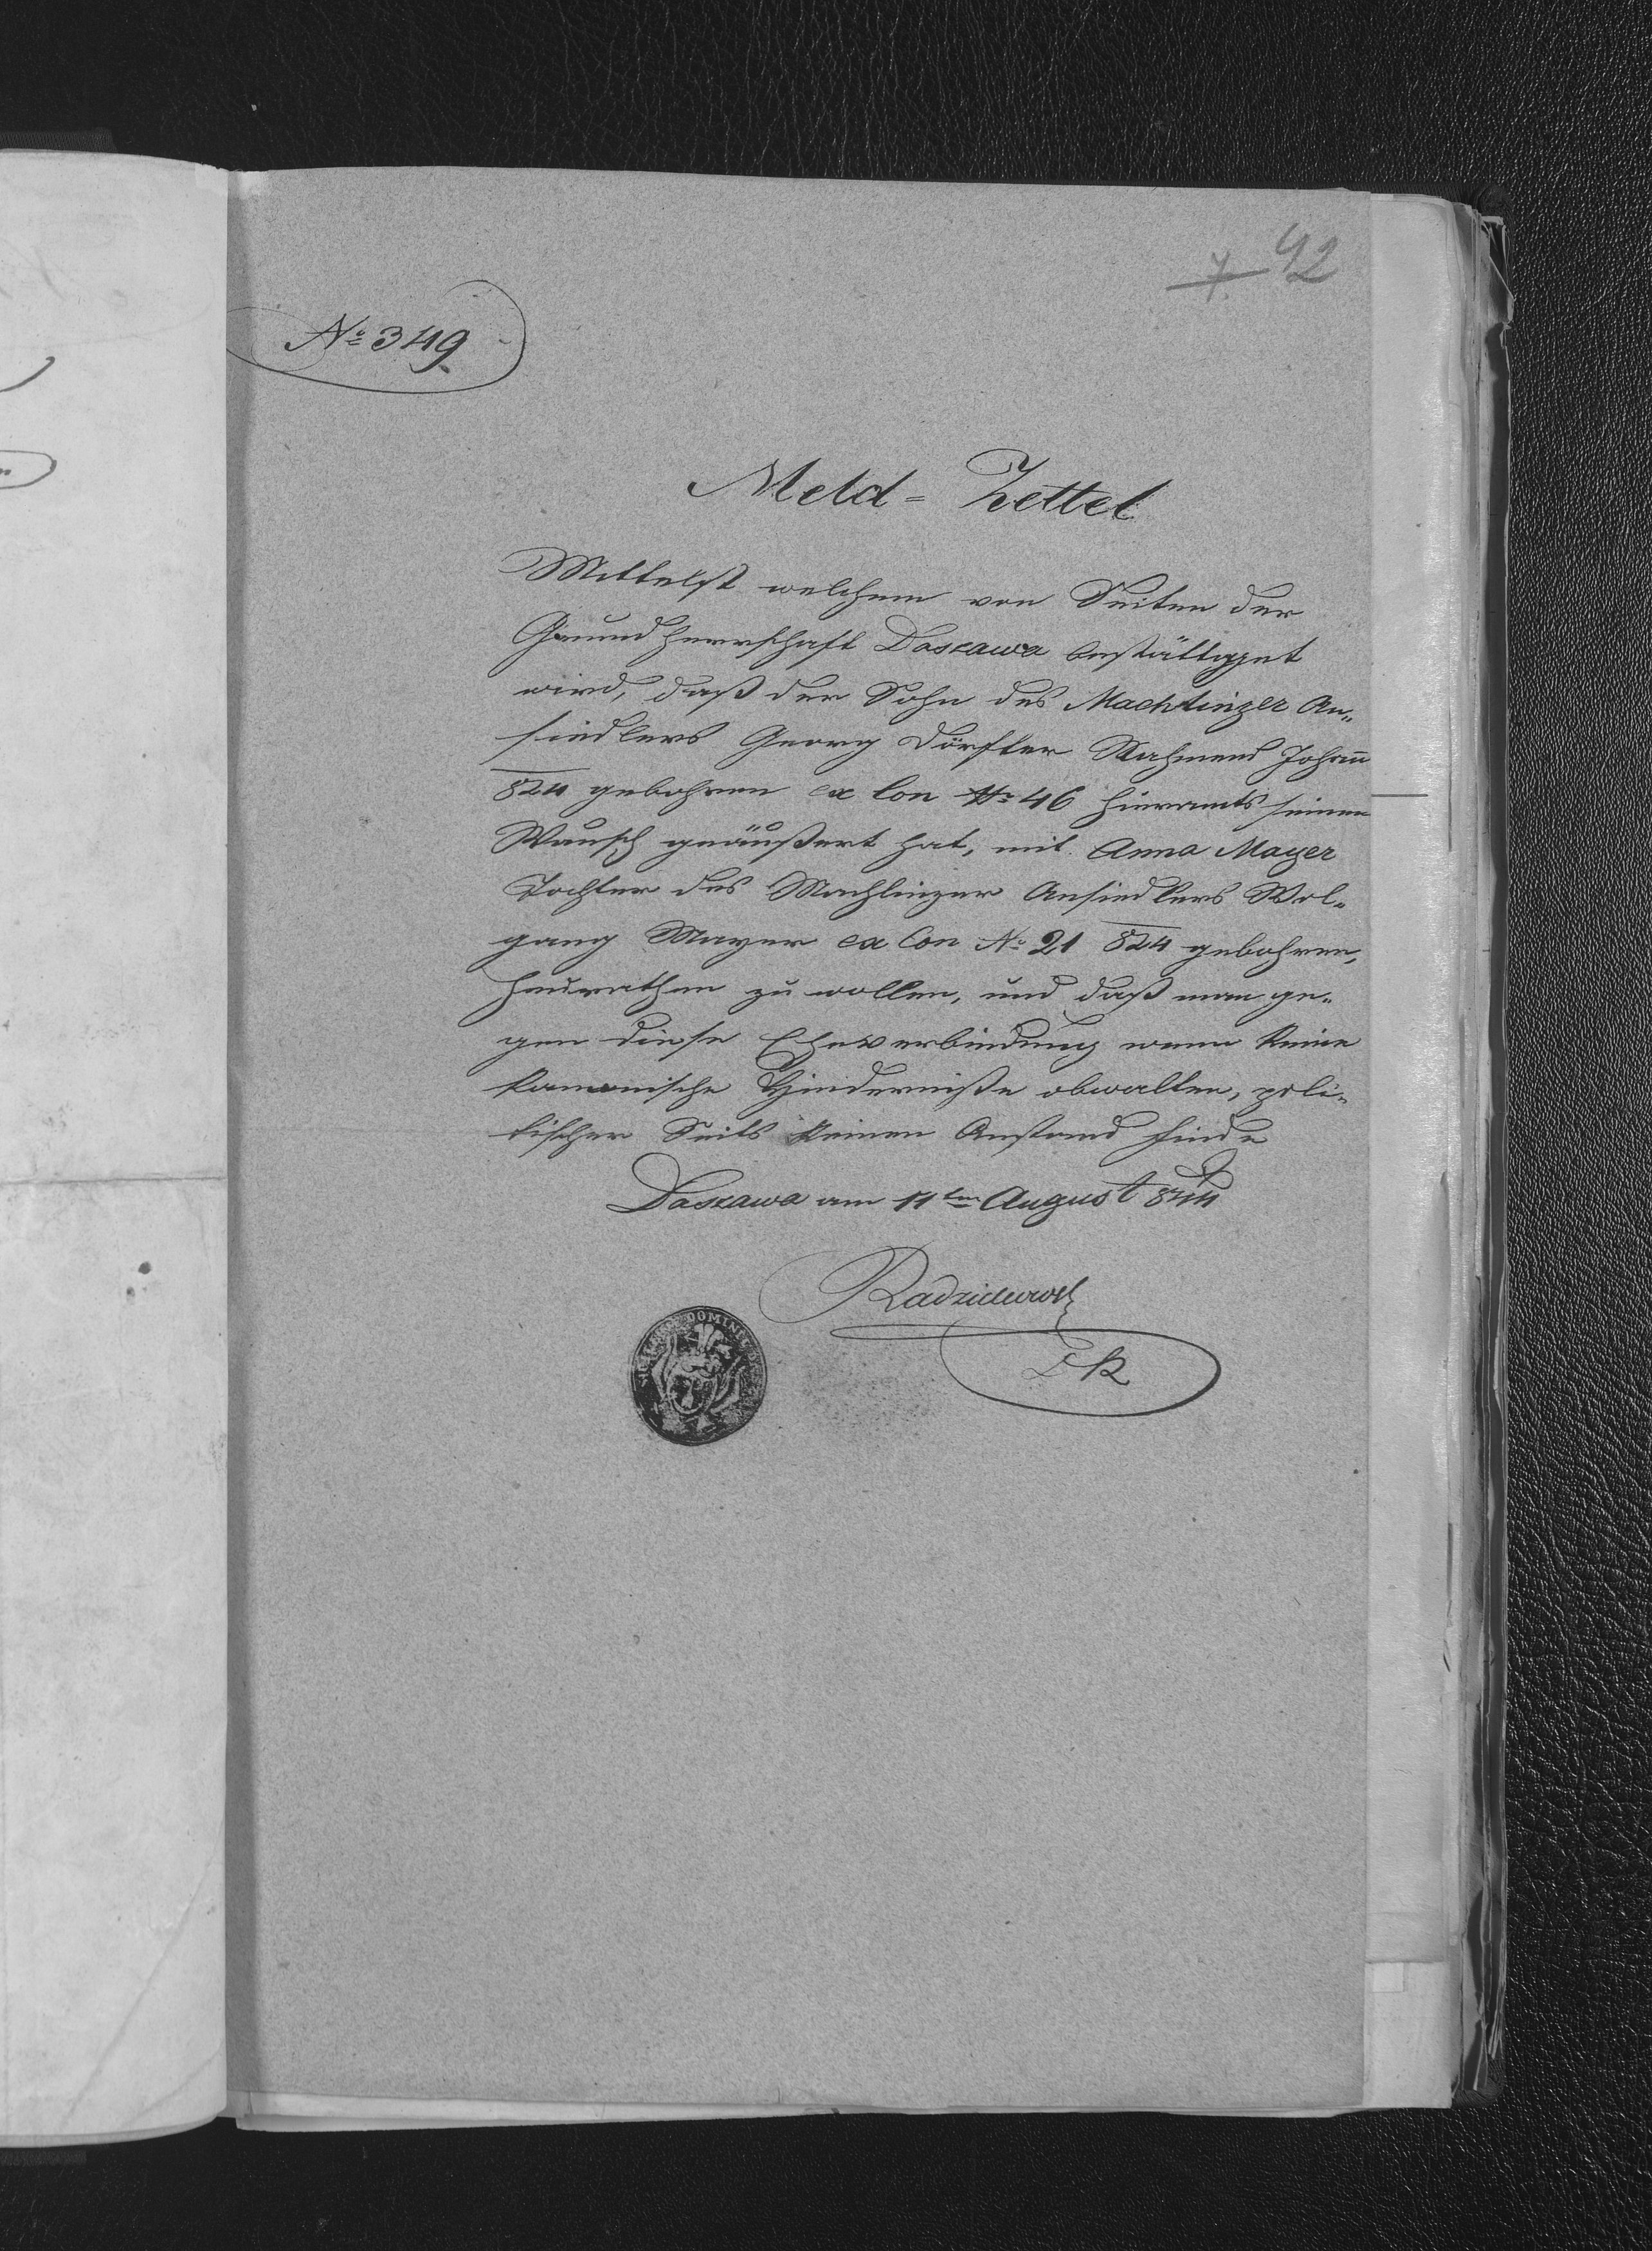 7. 42
No 349
Meld = Zettel
Mittelst welchem von Seiten der
Grundherrschaft Daszawa bestättiget
wird, daß der Sohn des Machlinzer An„
siedlers Georg Dörfler Nahmens Johann
824 gebohren ex Con No 46 hieramts seinen
Wunsch geäußert hat, mit Anna Mayer
Tochter des Machlinzer Ansiedlers Wol„
gang Mayer ex Con No 21 824 gebohren,
heurathen zu wollen, und daß man ge„
gen diese Eheverbindung wenn keine
kanonische Hinderniße obwalten, poli„
tischer Seits keinen Anstand finde
Daszawa am 11ten August 844
DOMINII